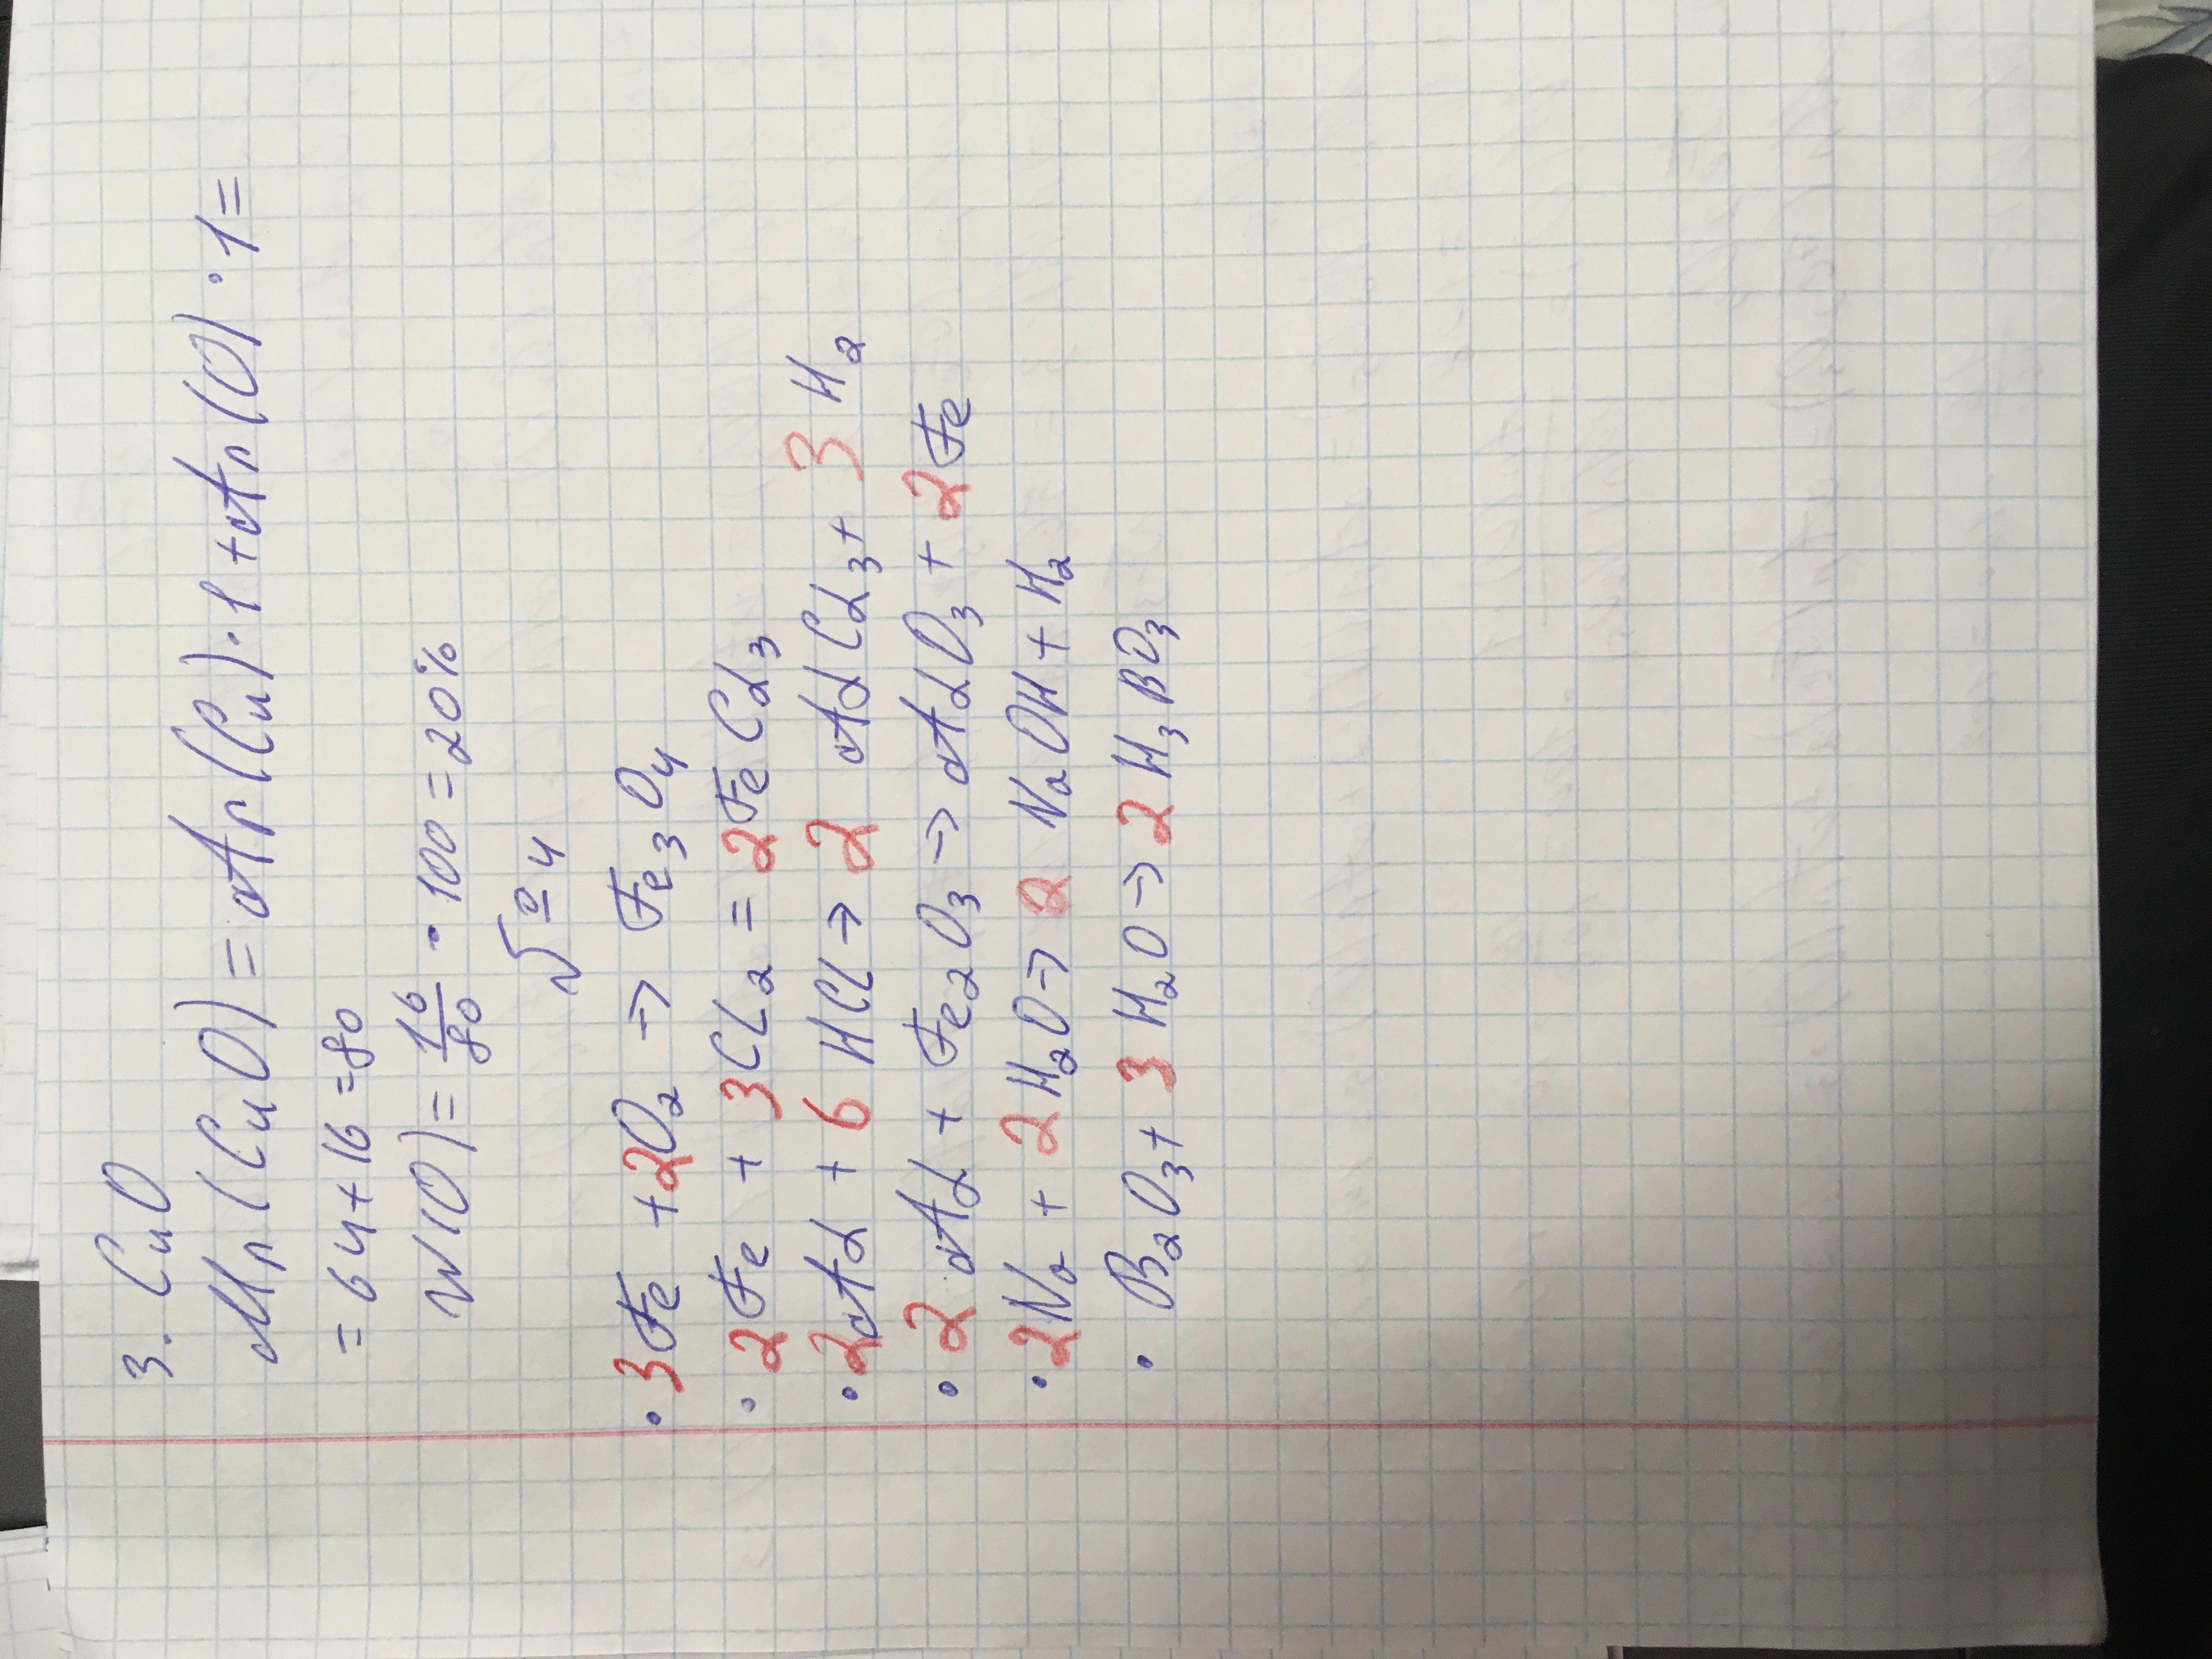 3. CuO
Mr(CuO) = Ar(Cu)·1 + Ar(O)·1 =
= 64 + 16 = 80
W(O) = 16/80 · 100 = 20%
№4
· 3Fe + 2O₂ → Fe₃O₄
· 2Fe + 3Cl₂ = 2FeCl₃
· 2Al + 6HCl → 2AlCl₃ + 3H₂
· 2Al + Fe₂O₃ → AlO₃ + 2Fe
· 2Na + 2H₂O → 2NaOH + H₂
· B₂O₃ + 3H₂O → 2H₃BO₃